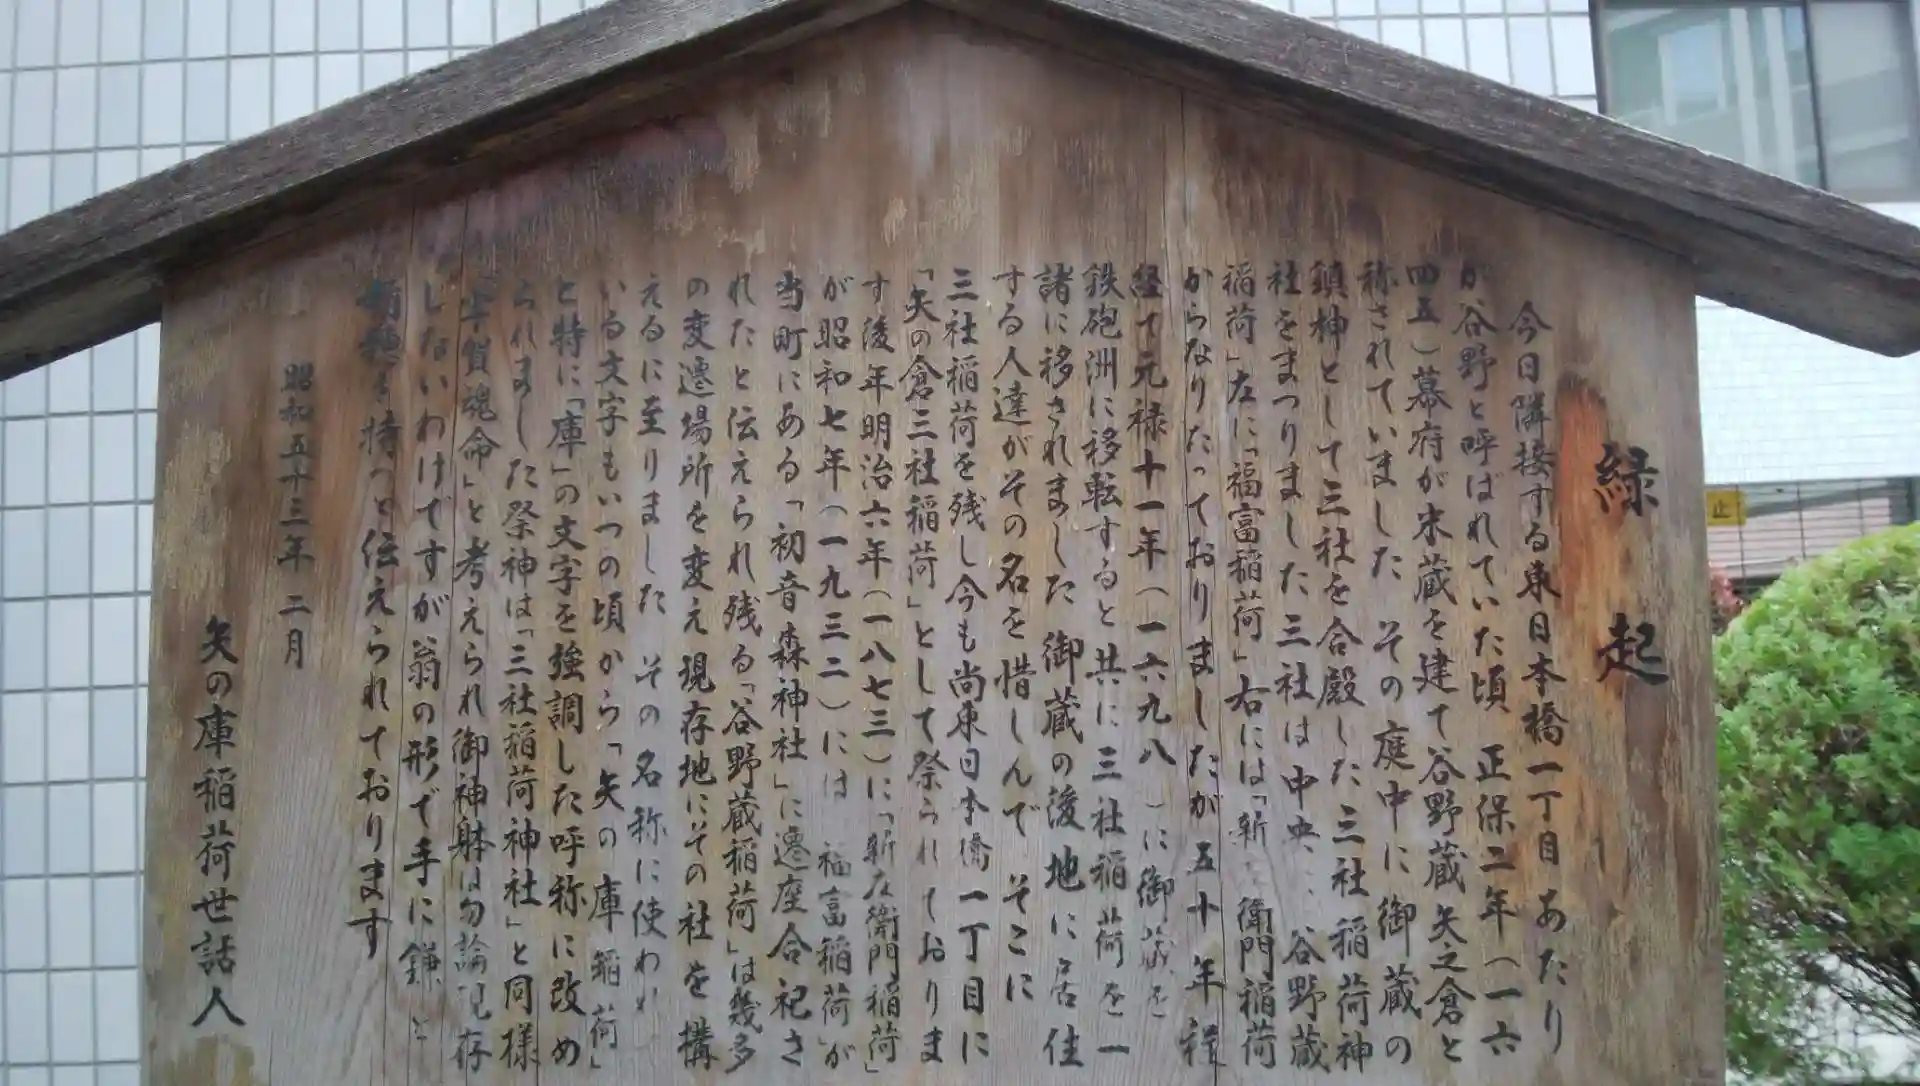 縁起
今日隣接する東日本橋一丁目あたり
が谷野と呼ばれていた頃 正保二年(一六
四五)幕府が米蔵を建て谷野蔵矢之倉と
称されていました その庭中に御蔵の
鎮神として三社を合殿した三社稲荷神
社をまつりました三社は中央に谷野蔵
稲荷」左に「福富稲荷」右には「斬 衛門稲荷
からなりたっておりましたが五十年程
経て元禄十一年(一六九八)に御蔵を
鉄砲洲に移転すると共に三社稲荷を一
諸に移されました 御蔵の後地に居住
する人達がその名を惜しんで そこに
三社稲荷を残し今も尚東日本橋一丁目に
「矢の倉三社稲荷」として祭られておりま
す後年明治六年(一八七三)に「斬左衛門稲荷」
が昭和七年(一九三二)には 福富稲荷」が
当町にある「初音森神社」に遷座合祀さ
れたと伝えられ残る「谷野蔵稲荷」は幾多
の変遷場所を変え現存地にその社を構
えるに至りました その名称に使われ
いる文字もいつの頃から「矢の庫稲荷」
と特に「庫」の文字を強調した呼称に改め
られました祭神は「三社稲荷神社」と同様
賀魂命」と考えられ御神躰は勿論現存
しないわけですが翁の形で手に鎌と
稲穂を持つと伝えられております
昭和五十三年 二月
矢の庫稲荷世話人
止